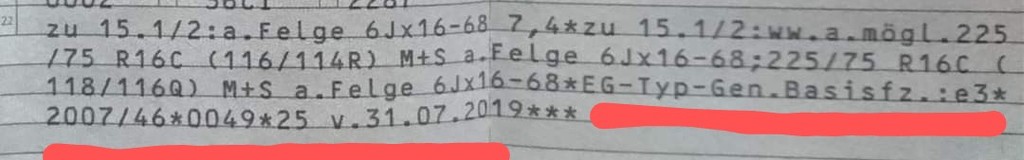 22
zu 15.1/2:a.Felge 6Jx16-68 7,4*zu 15.1/2:ww.a.mögl.225
/75 R16C (116/114R) M+S a.Felge 6Jx16-68;225/75 R16C (
118/116Q) M+S a.Felge 6Jx16-68*EG-Typ-Gen.Basisfz.:e3*
2007/46*0049*25 v.31.07.2019***